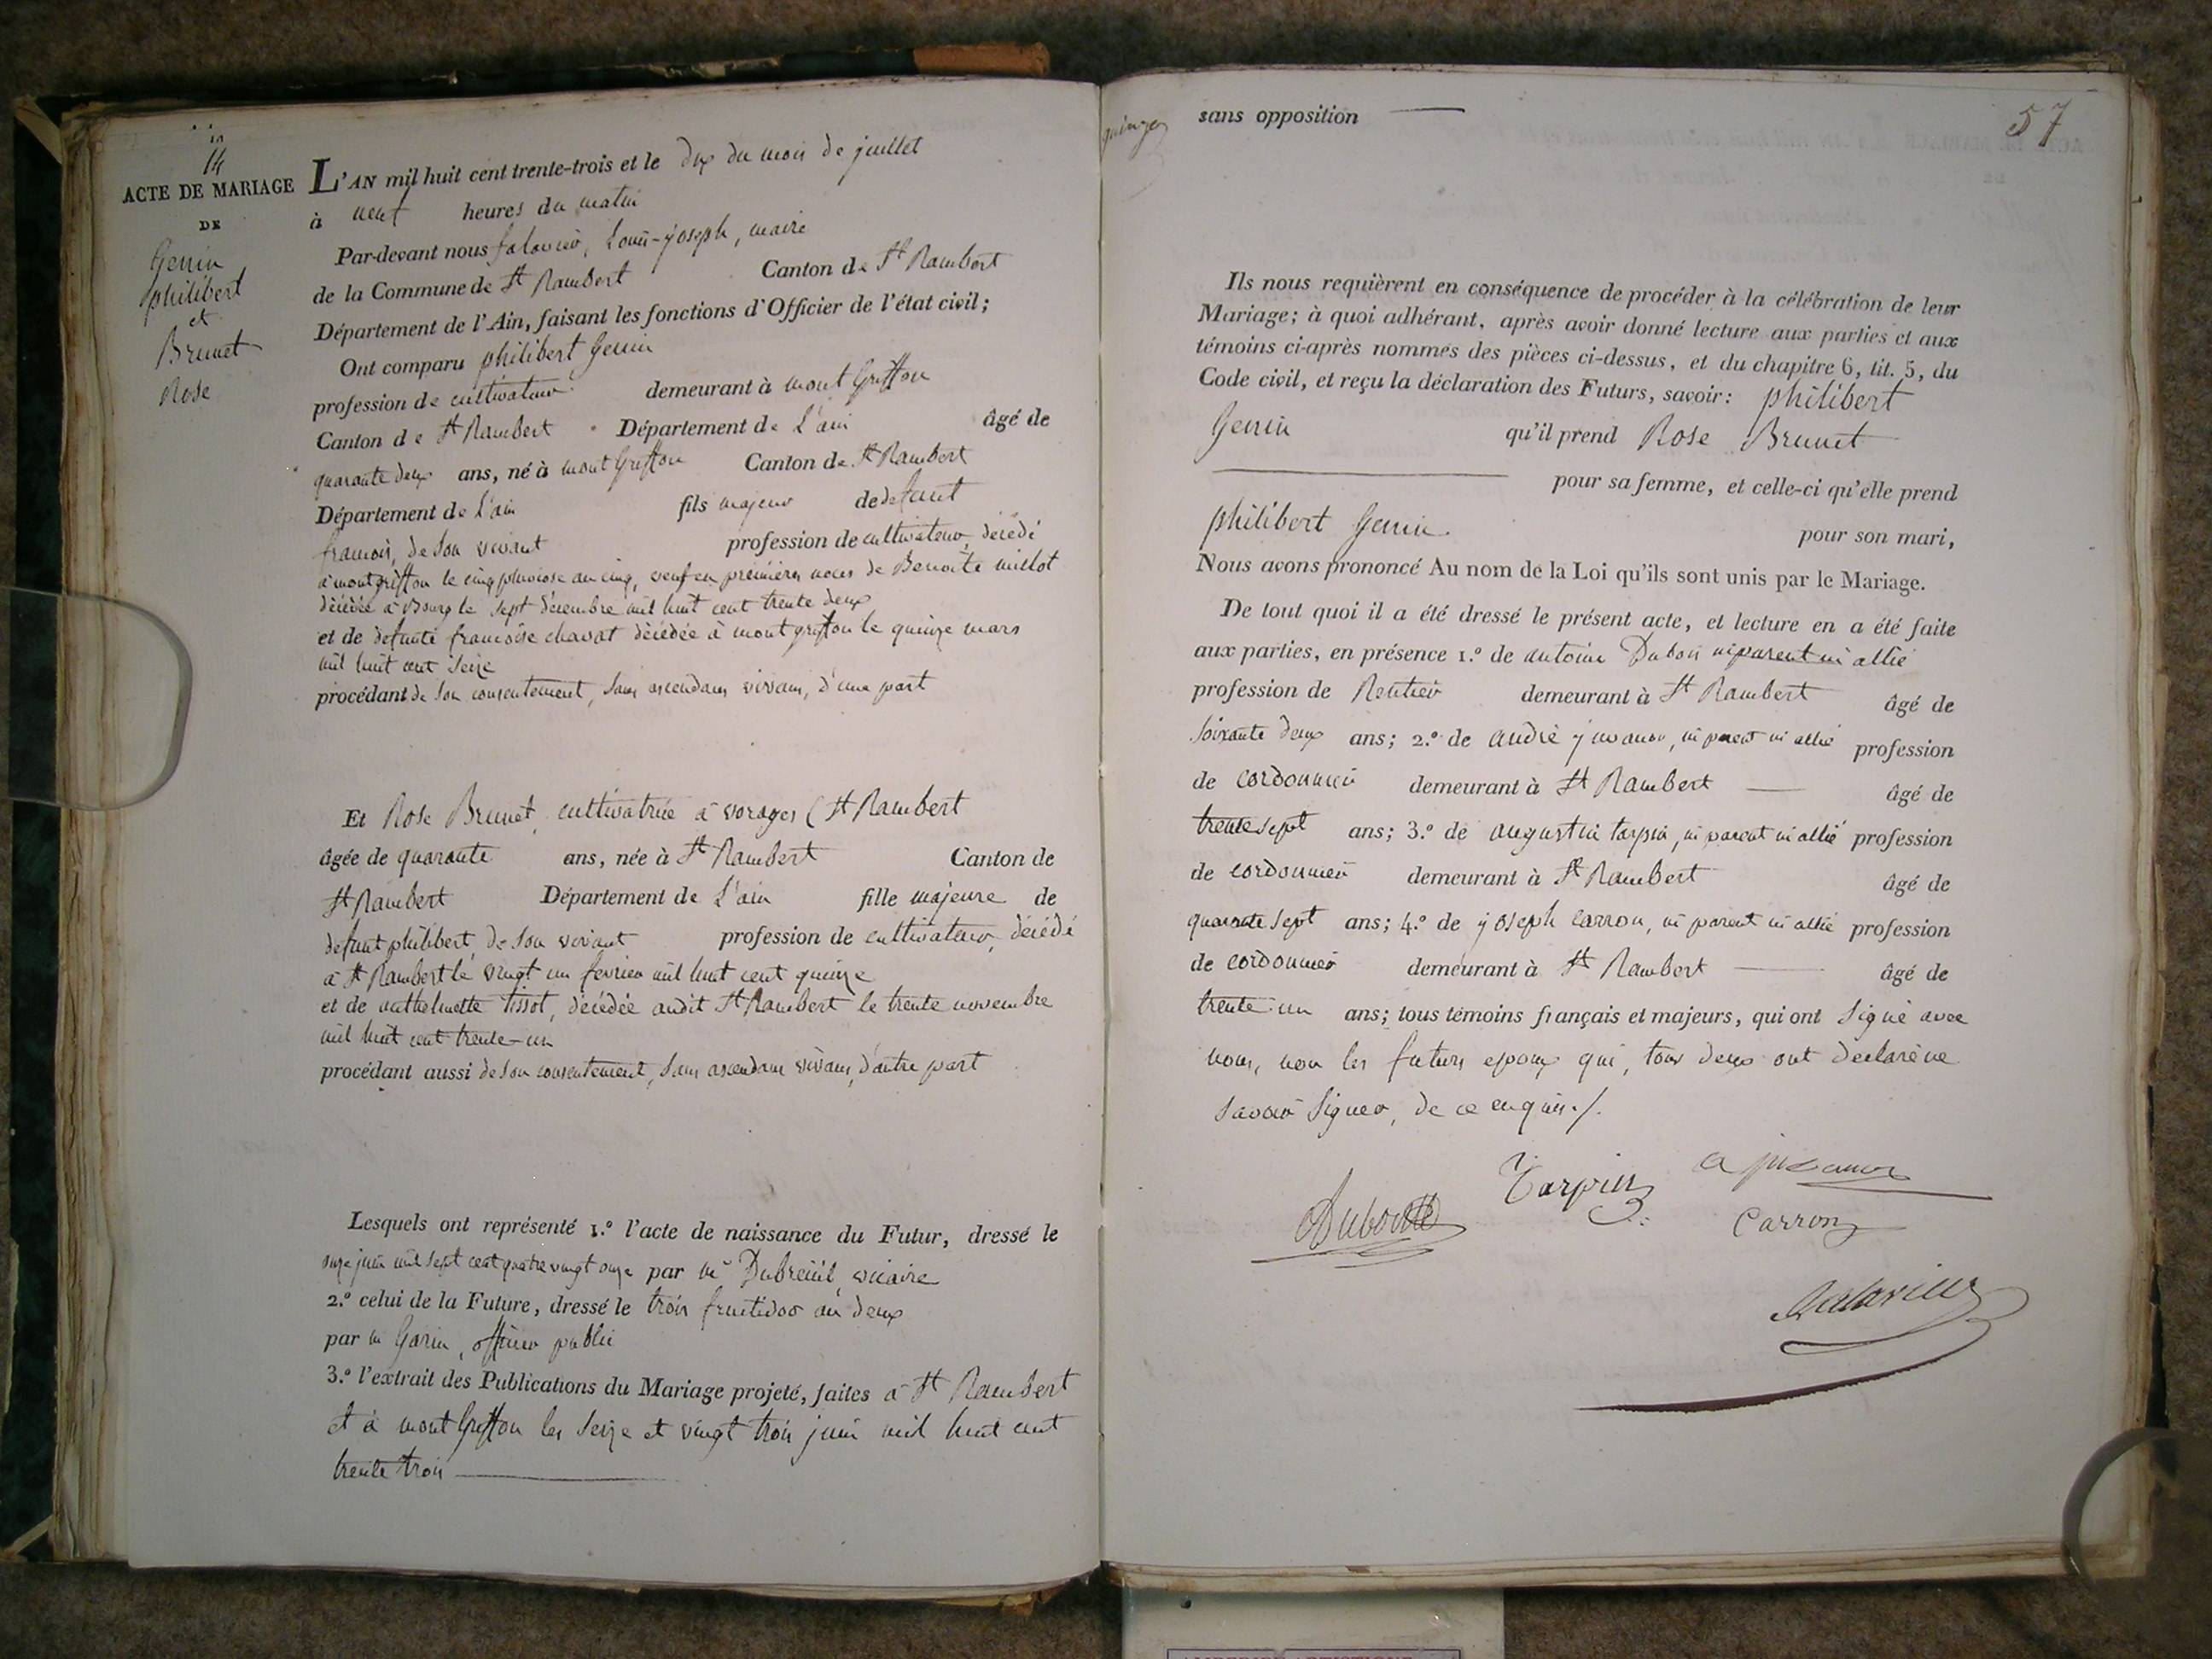 14
ACTE DE MARIAGE
DE
Genin
philibert
et
Brunet
Rose
L'AN mil huit cent trente-trois et le dix du mois de juillet
à neuf heures du matin
Par-devant nous falavier, Louis-joseph, maire
de la Commune de St Rambert Canton de St Rambert
Département de l'Ain, faisant les fonctions d'Officier de l'état civil;
Ont comparu philibert Genin
profession de cultivateur demeurant à mont Griffon
Canton de St Rambert Département de L'ain âgé de
quarante deux ans, né à mont Griffon Canton de St Rambert
Département de L'ain fils majeur de defunt
francois, de son vivant profession de cultivateur, décédé
à montgriffon le cinq pluviose an cinq, veuf en premières noces de Benoite millot
décédée à Bourg le sept decembre mil huit cent trente deux
et de defunte francoise chavat décédée à mont griffon le quinze mars
mil huit cent seize
procédant de son consentement, sans ascendans vivans, d'une part
Et Rose Brunet, cultivatrice à vorages (St Rambert
âgée de quarante ans, née à St Rambert Canton de
St Rambert Département de L'ain fille majeure de
defunt philibert, de son vivant profession de cultivateur, décédé
à St Rambert le vingt un fevrier mil huit cent quinze
et de anthelmette tissot, décédée audit St Rambert le trente novembre
mil huit cent trente-un
procédant aussi de son consentement, sans ascendans vivans, d'autre part
Lesquels ont représenté 1.º l'acte de naissance du Futur, dressé le
onze juin mil sept cent quatre vingt onze par mr Dubreüil vicaire
2.º celui de la Future, dressé le trois fructidor an deux
par m Garin, officier public
3.º l'extrait des Publications du Mariage projeté, faites à St Rambert
et à mont Griffon les seize et vingt trois juin mil huit cent
trente trois
57
sans opposition
Ils nous requièrent en conséquence de procéder à la célébration de leur
Mariage; à quoi adhérant, après avoir donné lecture aux parties et aux
témoins ci-après nommés des pièces ci-dessus, et du chapitre 6, tit. 5, du
Code civil, et reçu la déclaration des Futurs, savoir: philibert
Genin qu'il prend Rose Brunet
pour sa femme, et celle-ci qu'elle prend
philibert Genin pour son mari,
Nous avons prononcé Au nom de la Loi qu'ils sont unis par le Mariage.
De tout quoi il a été dressé le présent acte, et lecture en a été faite
aux parties, en présence 1.º de antoine Dubois ni parent ni allié
profession de Rentier demeurant à St Rambert âgé de
soixante deux ans; 2.º de andré juvanon, ni parent ni allié profession
de cordonnier demeurant à St Rambert âgé de
trente sept ans; 3.º de augustin tarpin, ni parent ni allié profession
de cordonnier demeurant à St Rambert âgé de
quarante sept ans; 4.º de joseph carron, ni parent ni allié profession
de cordonnier demeurant à St Rambert âgé de
trente-un ans; tous témoins français et majeurs, qui ont signé avec
nous, non les futurs epoux qui, tous deux ont declaré ne
savoir signer, de ce enquis./.
Tarpin
Carron